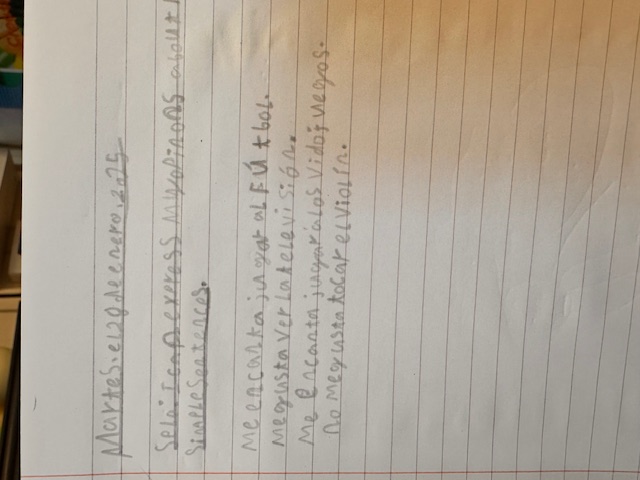 Martes.el 20 de enero.2025
Splai I can express my opinons about
Simple Sentences.
Me encanta jugar al FÚtbol.
Me gusta ver la televisión.
Me Encanta jugar a los vidojuegos.
no me gusta tocar el violín.